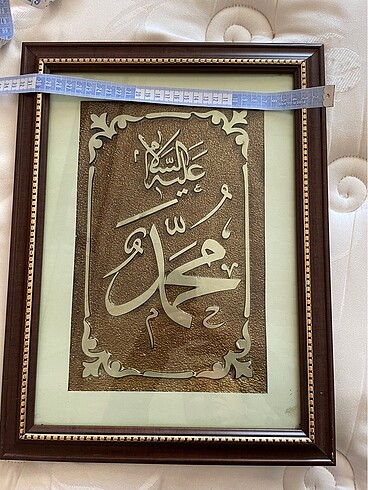 عليه السلام
محمد